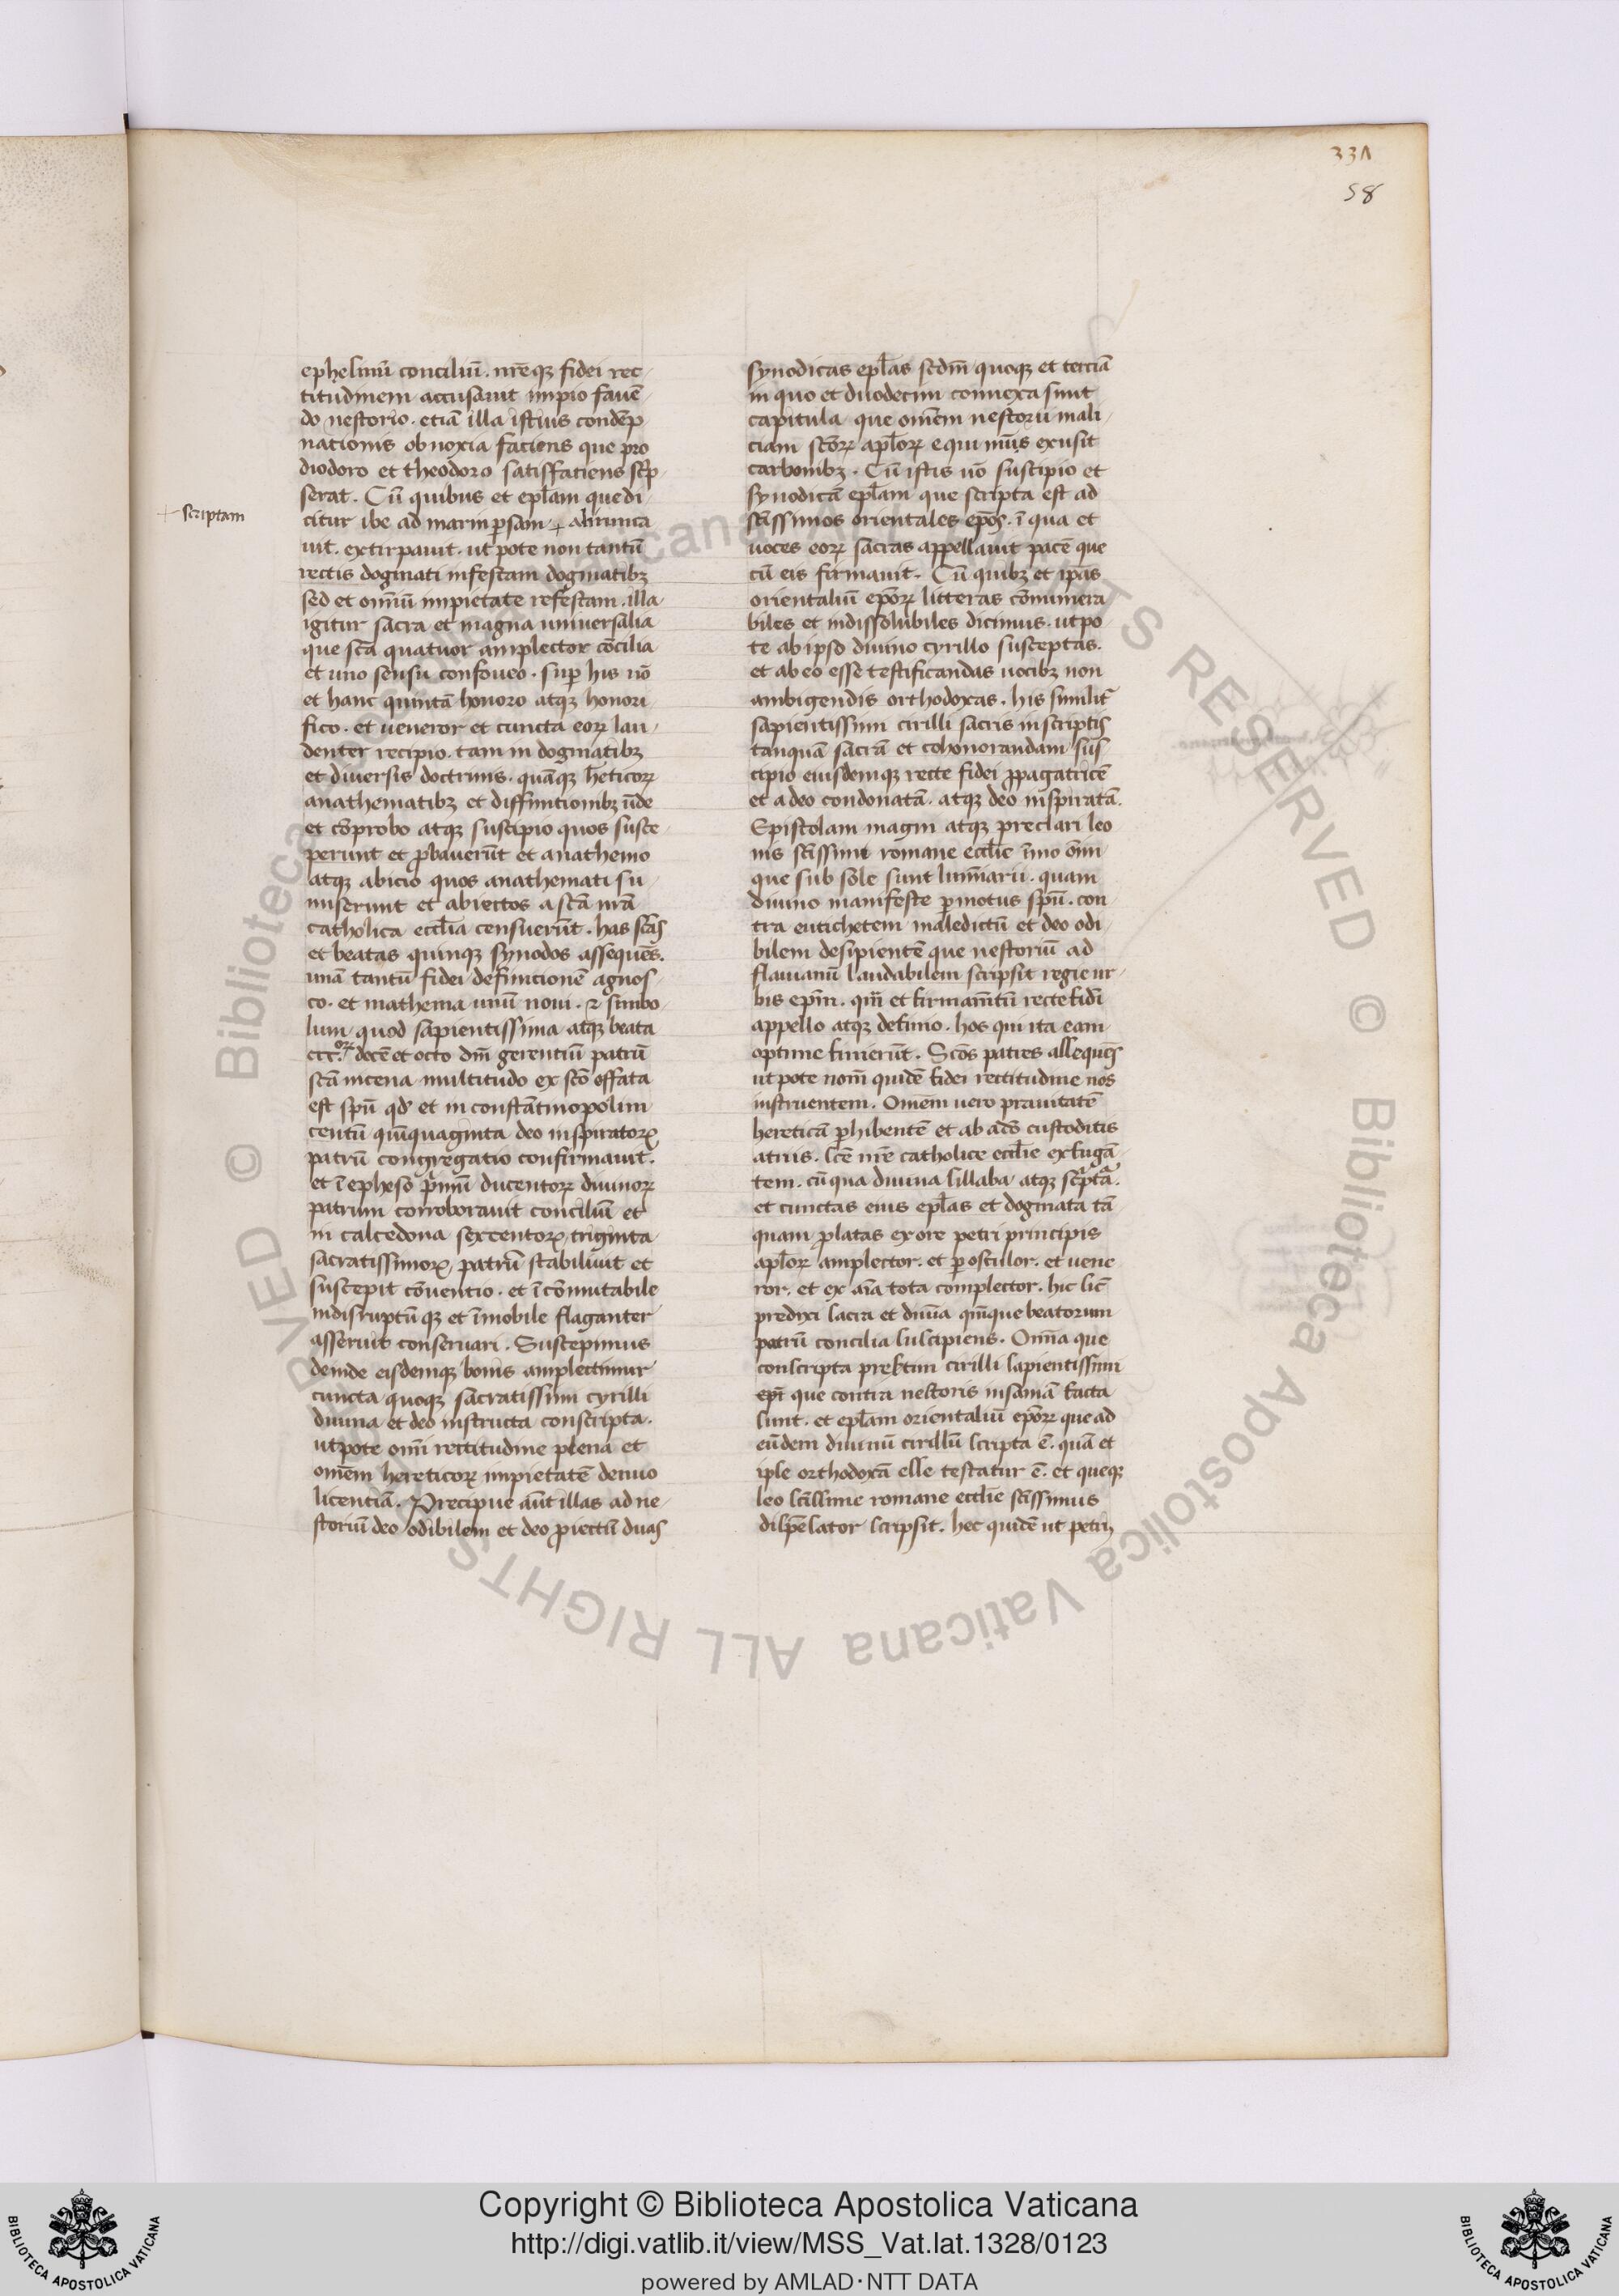 331
58
ephesinū conciliū. nr̄eqꝫ fidei rec-
titudinem accusarūt impio favē-
do nestorio. etiā illa istius condēp
nationis obnoxia faciens que pro
diodoro et theodoro satisfaciens scͥp
serat. Cū quibus et ep̄lam que di-
citur ibe ad marin ꝑsam + abrunca
scriptam
uit. extirpauit. ut pote non tantū
rectis dogmati infestam dogmatibꝫ
sed et om̄iū impietate refestam. illa
igitur sacra et magna uniuersalia
que sc̄a quatuor amplector cōcilia
et uno sensu confoueo. suꝑ his uō
et hanc quintā honoro atqꝫ honori
fico. et ueneror et cuncta eoꝝ lau-
denter recipio. tam in dogmatibꝫ
et diuersis doctrinis. quāqꝫ heticoꝝ
anathematibꝫ et diffinitionibꝫ ūde
et cōprobo atqꝫ suscipio quos susce-
perunt et ꝓbauerūt et anathemo
atqꝫ abicio quos anathemati su-
miserunt et abiectos a sc̄a nr̄a
catholica eccl̄ia censuerūt. has sc̄as
et beatas quinqꝫ synodos assequēs.
unā tantū fidei definicionē agnos-
co. et mathema unū noui. ⁊ simbo-
lum quod sapientissima atqꝫ beata
ccc.oꝝ decē et octo dm̄ gerentiū patrū
sc̄a nicena multitudo ex sc̄o effata
est spū qd̄ et in constātinopolim
centū quīquaginta deo inspiratoꝝ
patrū congregatio confirmauit.
et ī epheso pͥmū ducentoꝝ diuinoꝝ
patrum corroborauit conciliū et
in calcedona sexcentoꝝ triginta
sacratissimoꝝ patrū stabiliuit et
suscepit cōuentio. et īcōmutabile
indisruptū qꝫ et īmobile flaganter
asseruit conseruari. Suscepimus
deinde eisdemqꝫ bonis amplectimur
cuncta quoqꝫ sacratissimi cyrilli
diuina et deo instructa conscripta.
utpote om̄i rectitudine plena et
om̄em hereticoꝝ impietatē denuo
licentiā. Precipue aūt illas ad ne-
storiū deo odibilem et deo ꝓiectū duas
synodicas ep̄las scdm̄ quoqꝫ et terciā
in quo et duodecim connexa sunt
capitula que om̄em nestorii mali-
ciam sc̄oꝝ apl̄oꝝ equi mīis exusit
carbonibꝫ. Cū istis uō suscipio et
synodicā ep̄lam que scripta est ad
sc̄issimos orientales ep̄os. ī qua et
uoces eoꝝ sacras appellauit pacē que
cū eis firmauit. Cū quibꝫ et ip̄as
orientaliū ep̄oꝝ litteras cōnumera
biles et indissolubiles dicimus. utpo
te ab ipso diuino cyrillo susceptas.
et ab eo esse testificandas uocibꝫ non
ambigendis orthodoxas. his similit̄
sapientissimi cirilli sacris inscriptis
tanquā sacrā et cohonorandam sus
cipio eiusdemqꝫ recte fidei ꝓpagatricē
et a deo condonatā. atqꝫ deo inspiratā.
Epistolam magni atqꝫ preclari leo
nis sc̄issime romane eccl̄ie īmo om̄i
que sub sole sunt lumīarii. quam
diuino manifeste ꝑmotus spū. con
tra eutichetem maledictū et deo odi
bilem desipientē que nestoriū ad
flauianū laudabilem scripsit regie ur-
bis epm̄. qm̄ et firmam̄tū recte fidi
appello atqꝫ definio. hos qui ita eam
optime finierūt. Sc̄os patres assequēs
ut pote nom̄ quidē fidei rectitudine nos
instruentem. Om̄em uero prauitatē
hereticā ꝓhibentē et ab adō custoditis
atriis. sc̄e nr̄e catholice eccl̄ie exfugā
tem. cū qua diuina sillaba atqꝫ scͥptā.
et cunctas eius ep̄las et dogmata tā
quam ꝓlatas ex ore petri principis
apl̄oꝝ amplector. et ꝑ osculor. et uene
ror. et ex aīa tota complector. hic lic̄
predixi sacra et diuīa quīque beatorum
patrū concilia suscipiens. Om̄ia que
conscripta presertim cirilli sapientissimi
epī que contra nestoris insaniā facta
sunt. et ep̄lam orientaliū ep̄oꝝ que ad
eūdem diuinū cirillū scripta ē. quā et
ipse orthodoxā esse testatur ē. et queqꝫ
leo sc̄issime romane eccl̄ie sc̄issimus
dispēsator scripsit. hec quidē ut petrꝰ
Copyright © Biblioteca Apostolica Vaticana
http://digi.vatlib.it/view/MSS_Vat.lat.1328/0123
powered by AMLAD·NTT DATA